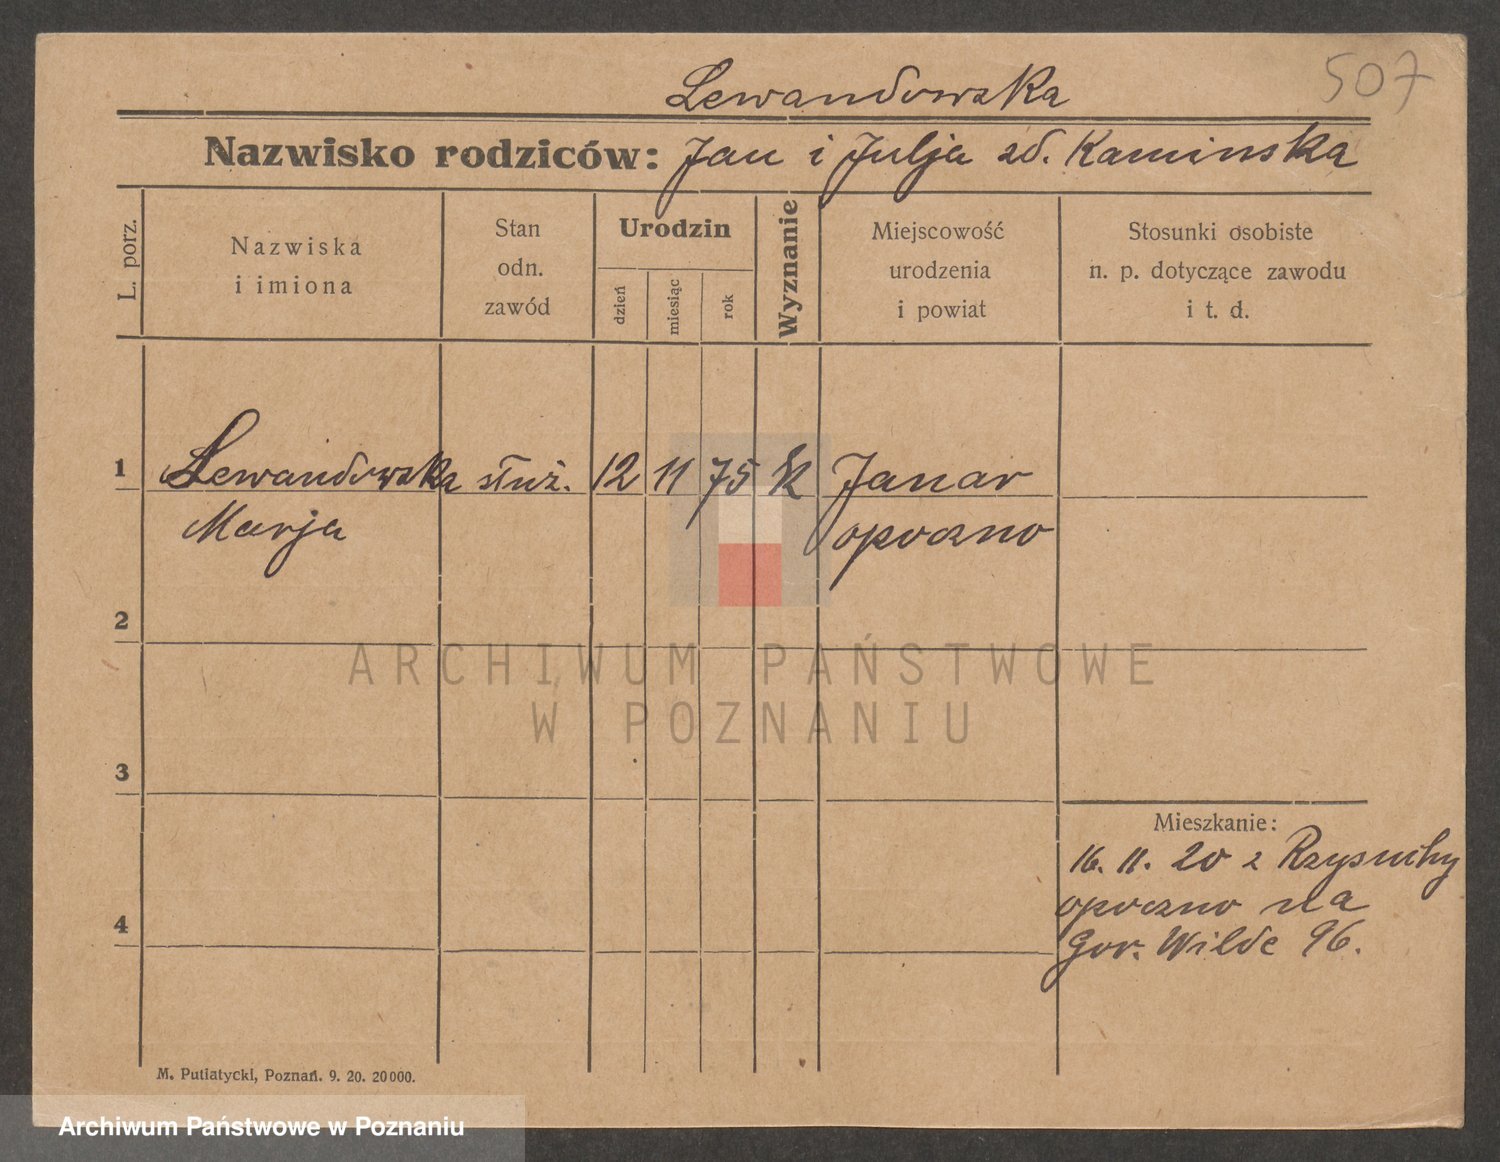 507
Lewandowska
Nazwisko rodziców: Jan i Julja zd. Kaminska
L. porz.
Nazwiska
i imiona
Stan
odn.
zawód
Urodzin
dzień
miesiąc
rok
Wyznanie
Miejscowość
urodzenia
i powiat
Stosunki osobiste
n. p. dotyczące zawodu
i t. d.
1 Lewandowska służ. 12 11 75 k Janar
Marja opoczno
2
ARCHIWUM PAŃSTWOWE
W POZNANIU
3
Mieszkanie:
16. 11. 20 z
opoczno na
4
Gor. Wilde 96.
M. Putiatycki, Poznań. 9. 20. 20000.
Archiwum Państwowe w Poznaniu